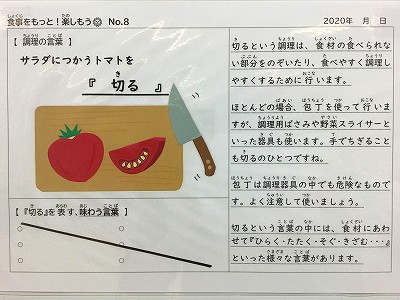 食事をもっと！楽しもう No.8
2020年　月　日
【 調理の言葉 】
サラダにつかうトマトを
『 切る 』
【 『切る』を表す、味わう言葉 】
切るという調理は、食材の食べられな
い部分をのぞいたり、食べやすく調理し
やすくするために行います。
ほとんどの場合、包丁を使って行いま
すが、調理用ばさみや野菜スライサーと
いった器具も使います。手でちぎること
も切るのひとつですね。
包丁は調理器具の中でも危険なもので
す。よく注意して使いましょう。
切るという言葉の中には、食材にあわ
せて『ひらく・たたく・そぐ・きざむ・・・』
といった様々な言葉があります。